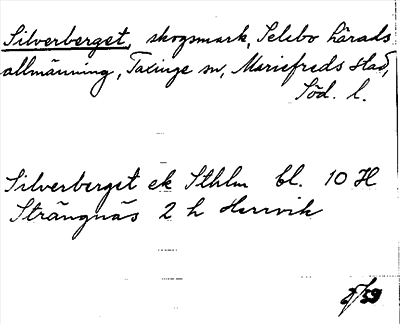 Silverberget, skogsmark, Selebo härads
allmänning, Taxinge sn, Mariefreds stad,
Söd. l.
Silverberget ek Sthlm bl. 10 H
Strängnäs 2 h Hernvik
/59